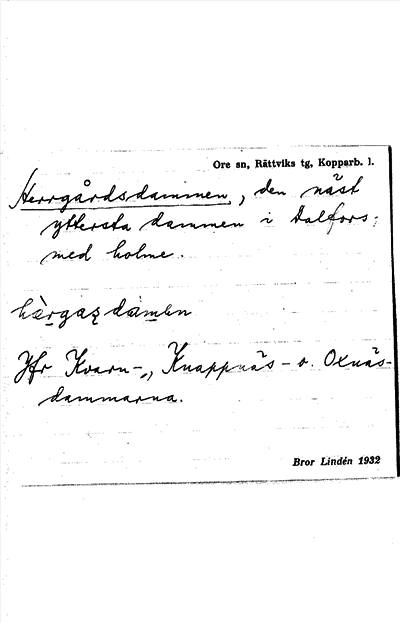 Ore sn, Rättviks tg, Kopparb. l.
Herrgårdsdammen, den näst
yttersta dammen i Dalfors;
med holme.
Jfr Kvarn-, Knappnäs- o. Oxnäs-
dammarna.
Bror Lindén 1932